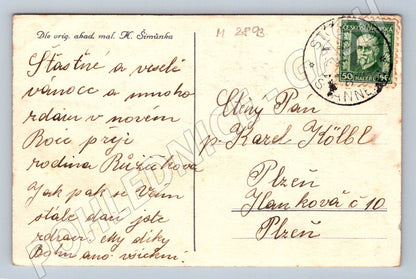 Dle orig. akad. mal. K. Šimůnka
M 2893
Šťastné a veselé
vánoce a mnoho
zdaru v novém
Roce přeje
rodina Růžičkova
Jak pak se Vám
stále daří jste
zdrávi. My díky
Bohu ano všickni.
ČESKOSLOVENSKO
50 HALÉŘŮ 50
Ctěný Pan
p. Karel Kölbl
Plzeň
Hanková č 10
Plzeň
POHLEDNICE